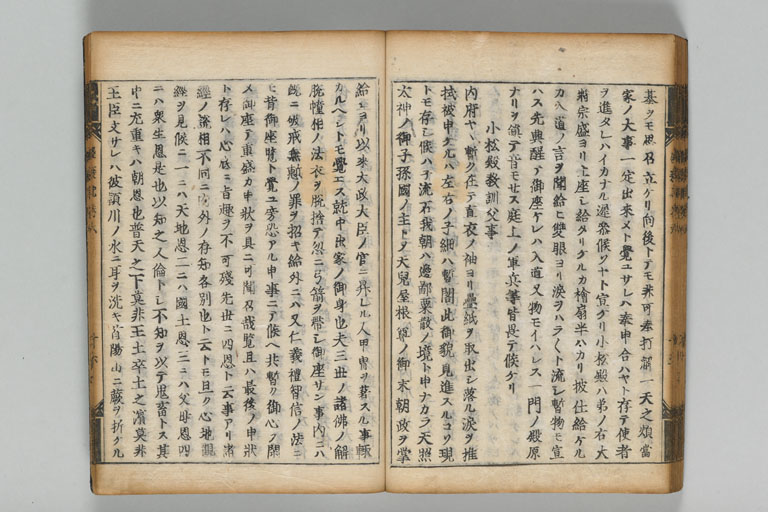 基ヲモ思召立ケリ向後トテモ非可奉打籠一天之煩當
家ノ大事一定出来メト覺ユサレハ奉申合ハヤト存テ使者
ヲ進タレハイカナル遅参候ツヤト宣ケリ小松殿ハ弟ノ右大
将宗盛ヨリ上座シ給タリケルカ檜扇半ハカリ披仕給ケル
カ入道ノ言ヲ聞給ヒ雙眼ヨリ涙ヲハラ〳〵ト流シ暫物モ宣
ハス先興醒テ御座ケレハ入道又物モイハレス一門ノ殿原
ナリヲ鎮テ音モセス庭上ノ軍兵等皆畏テ候ケリ
小松殿教訓父事
内府ヤヽ暫ク在テ直衣ノ袖ヨリ疊紙ヲ取出シ落ル涙ヲ推
拭被申ケルハ左右ノ子細ハ暫閣此御貌見進スルコソ現
トモ存シ候ハネ流石我朝ハ邊鄙粟散ノ境ト申ナカラ天照
太神ノ御子孫國ノ主トシテ天兒屋根尊ノ御末朝政ヲ掌
給シヨリ以来太政大臣ノ官ニ昇レル人甲冑ヲ著スル事輙
カルヘシトモ覺エス就中出家ノ御身也夫三世ノ諸佛ノ解
脱幢相ノ法衣ヲ脱捨テ忽ニ弓箭ヲ帯シ御座サン事内ニハ
既ニ破戒無慙ノ罪ヲ招キ給外ニハ又仁義禮智信ノ法ニ
モ背御座覽ト覺ユ旁恐アル申事ニテ候ヘ共暫ク御心ヲ閑
メ御座テ重盛カ申状ヲ具ニ可聞召哉覽且ハ最後ノ申状
ト存レハ心底ニ旨趣ヲ不可殘先世ニ四恩ト云事アリ諸
經ノ説相不同ニ内外ノ存知各別也ト云トモ且ク心地觀
經ヲ見候ニ一ニハ天地恩二ニハ國王恩三ニハ父母恩四
ニハ衆生恩是也以知之人倫トシ不知ヲ以テ鬼畜トス其
中ニ尤重キハ朝恩也普天之下莫非王土卒土之濱莫非
王臣文サレハ彼潁川ノ水ニ耳ヲ洗キ首陽山ニ蕨ヲ折ケル